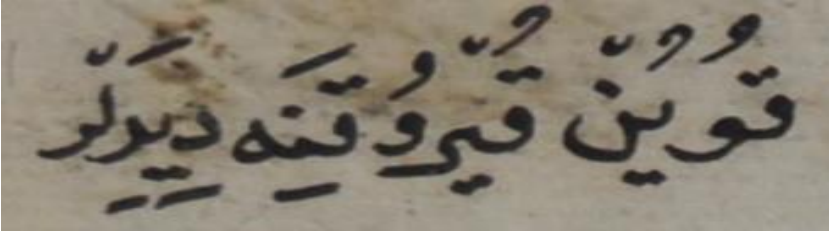 قُويُنْ قُيْرُوقِنَه دِيِرلَرْ